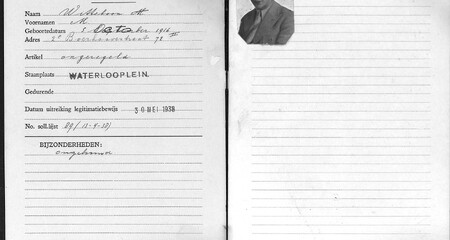 Naam
Voornamen M.
Geboortedatum 1 October 1916
Adres 2e Boerhaavestraat 72 II
Artikel ongeregeld
Staanplaats WATERLOOPLEIN.
Gedurende
Datum uitreiking legitimatiebewijs 30 MEI 1938
No. soll.lijst
BIJZONDERHEDEN:
ongehuwd